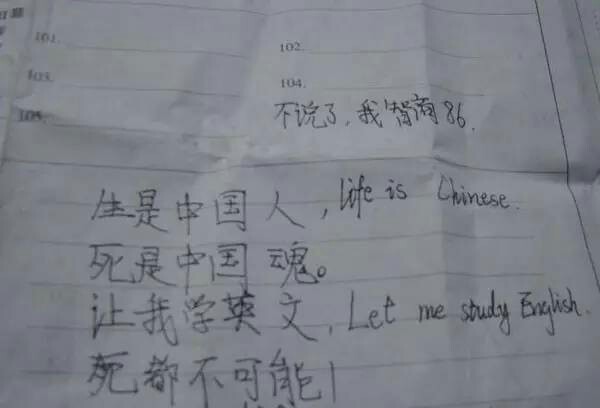 101.
102.
103.
104.
105.
不说了,我智商86.
生是中国人,life is Chinese.
死是中国魂。
让我学英文,Let me study English.
死都不可能!